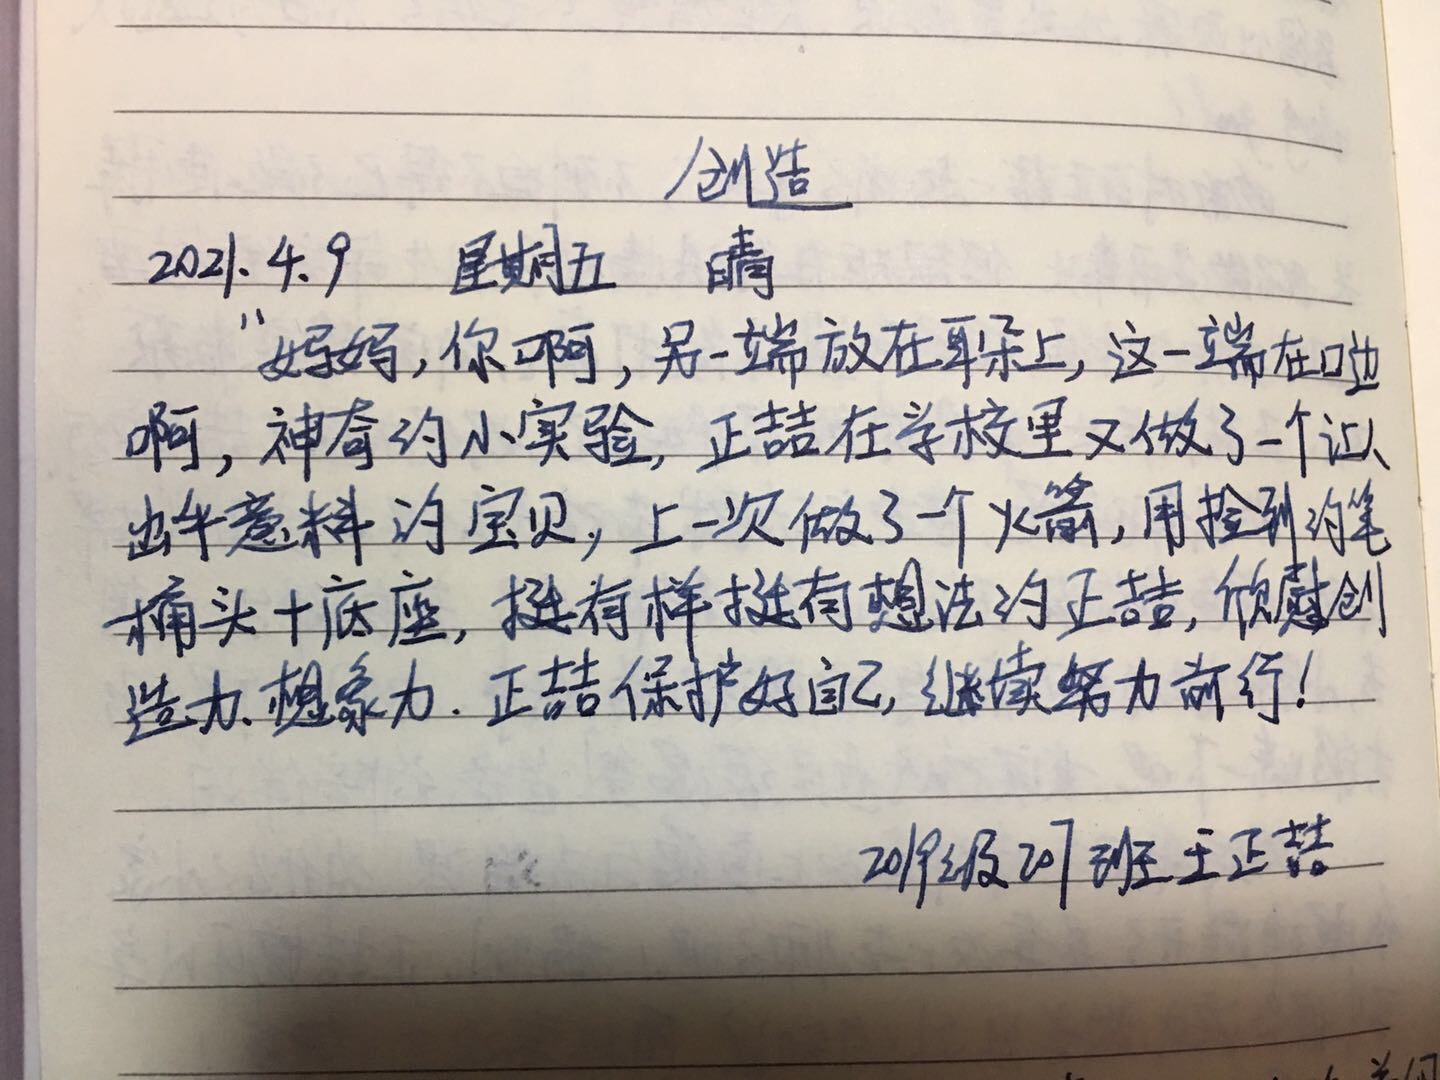 创造
2021.4.9 星期五 晴
"妈妈，你啊，另一端放在耳朵上，这一端在口边
啊，神奇的小实验，正喆在学校里又做了一个让人
出乎意料的宝贝，上一次做了一个火箭，用捡到的笔
桶头十底座，挺有样挺有想法的正喆，欣慰创
造力、想象力.正喆保护好自己，继续努力前行！
2019级207班王正喆